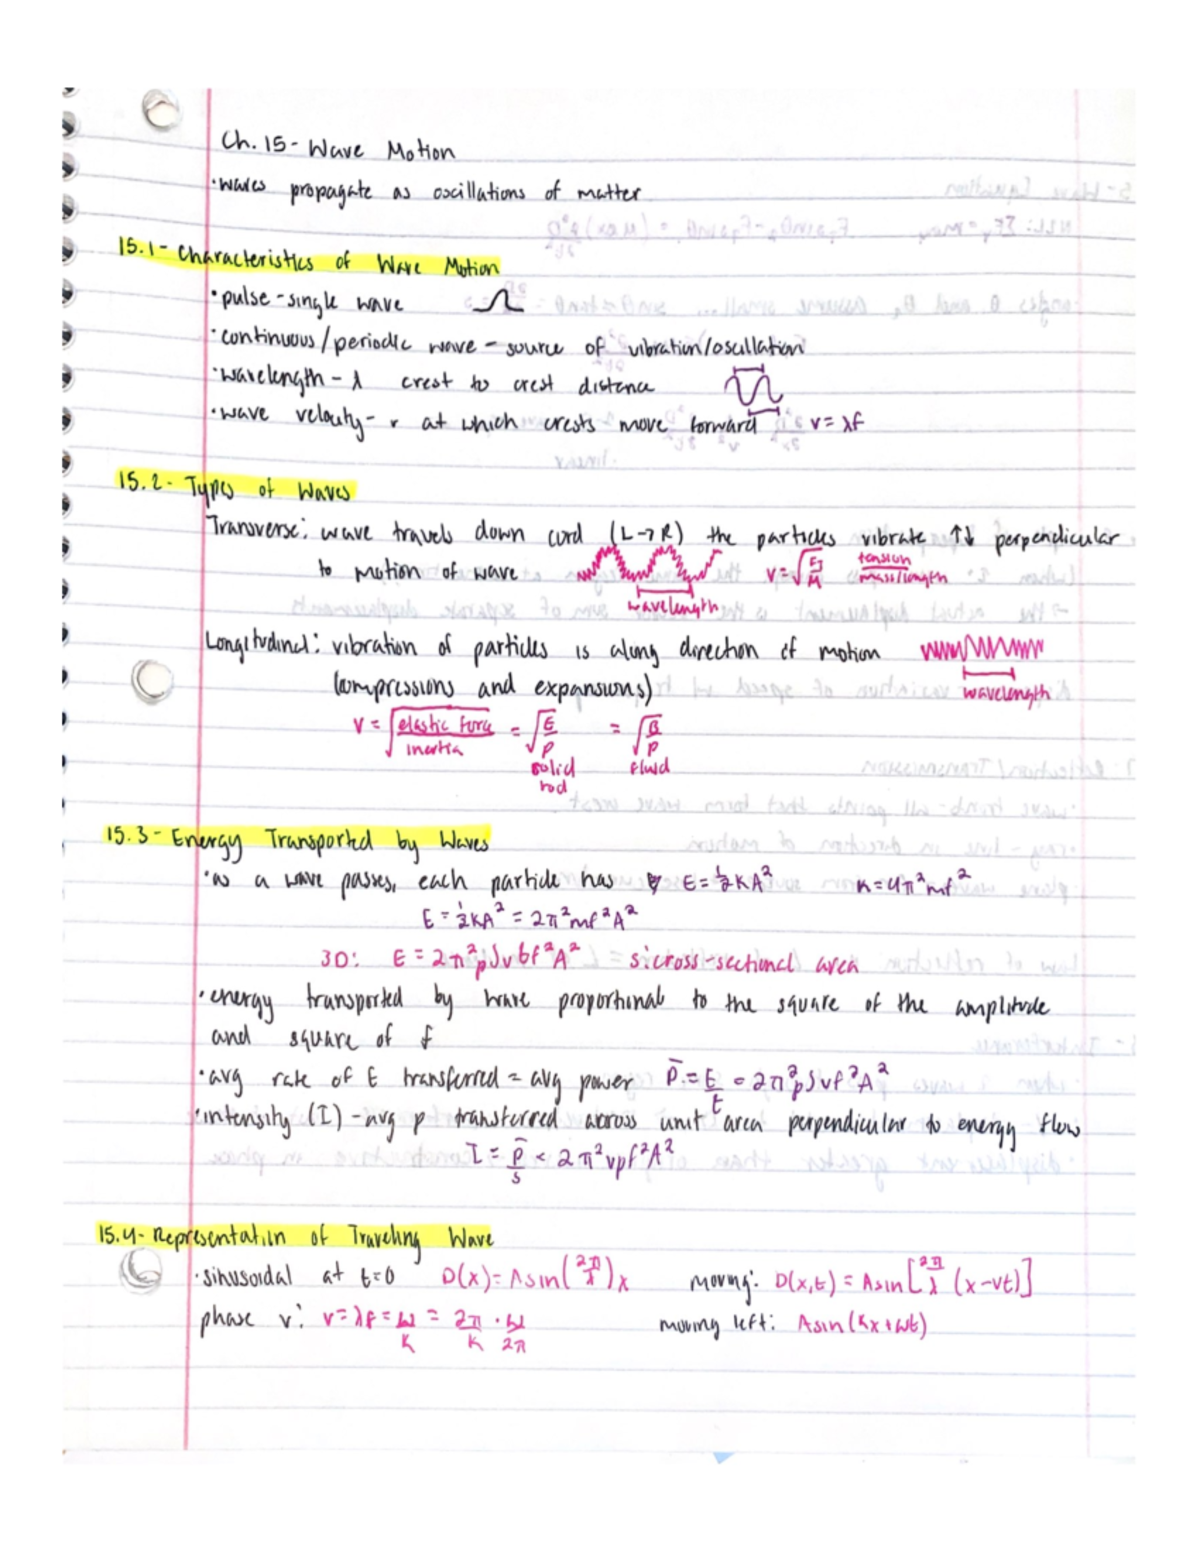 Ch. 15 - Wave Motion
· waves propagate as oscillations of matter
15.1 - Characteristics of Wave Motion
· pulse - single wave
· continuous / periodic wave - source of vibration/oscillation
· wavelength - λ crest to crest distance
· wave velocity - v at which crests move forward v = λf
15.2 - Types of Waves
Transverse: wave travels down cord (L→R) the particles vibrate ↑↓ perpendicular
to motion of wave v = √(F_T/μ) tension / mass/length
wavelength
Longitudinal: vibration of particles is along direction of motion
(compressions and expansions) wavelength
v = √(elastic force / inertia) = √(E/ρ) = √(B/ρ)
solid rod fluid
15.3 - Energy Transported by Waves
· as a wave passes, each particle has E = ½KA² K = 4π²mf²
E = ½KA² = 2π²mf²A²
3D: E = 2π²ρSvtf²A² S: cross-sectional area
· energy transported by wave proportional to the square of the amplitude
and square of f
· avg rate of E transferred = avg power P̄ = E/t = 2π²ρSvf²A²
· intensity (I) - avg p transferred across unit area perpendicular to energy flow
I = P̄/S = 2π²vρf²A²
15.4 - Representation of Traveling Wave
· sinusoidal at t=0 D(x) = A sin(2π/λ)x moving: D(x,t) = A sin[2π/λ (x-vt)]
phase v: v = λf = ω/K = 2π/K · ω/2π moving left: A sin(Kx+ωt)